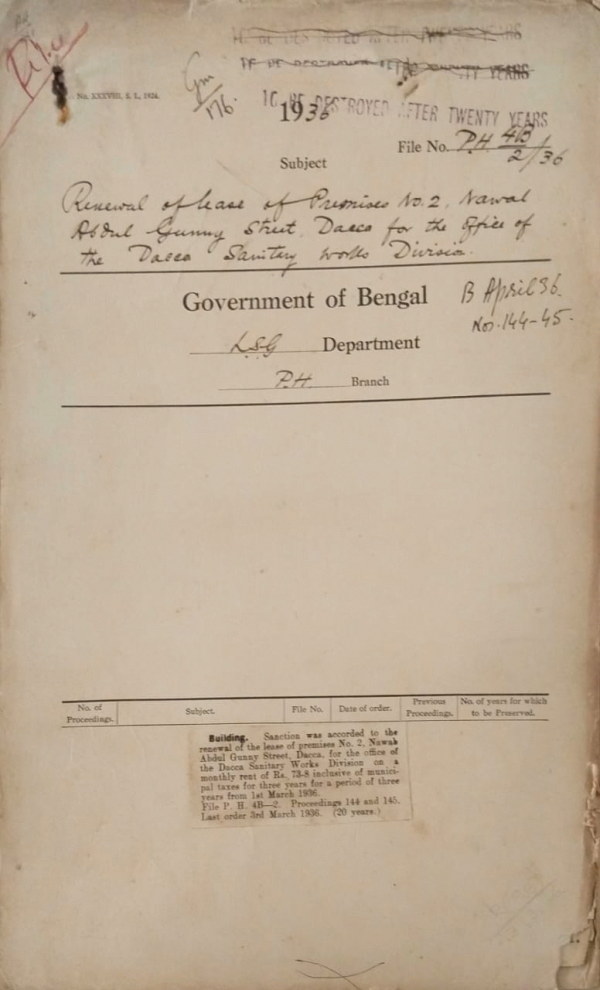 TO BE DESTROYED AFTER TWENTY YEARS
No. XXXVIII, S. L., 1936.
1936
File No. P.H. 4B/2/36
Subject
Renewal of lease of Premises No. 2, Nawab
Abdul Gunny Street, Dacca for the office of
the Dacca Sanitary Works Division.
Government of Bengal
B April 36.
Nos. 144-45.
L.S.G Department
P.H. Branch
No. of Proceedings. Subject. File No. Date of order. Previous Proceedings. No. of years for which to be Preserved.
Building. Sanction was accorded to the
renewal of the lease of premises No. 2, Nawab
Abdul Gunny Street, Dacca, for the office of
the Dacca Sanitary Works Division on a
monthly rent of Rs. 73-8 inclusive of munici-
pal taxes for three years for a period of three
years from 1st March 1936.
File P. H. 4B—2. Proceedings 144 and 145.
Last order 3rd March 1936. (20 years.)